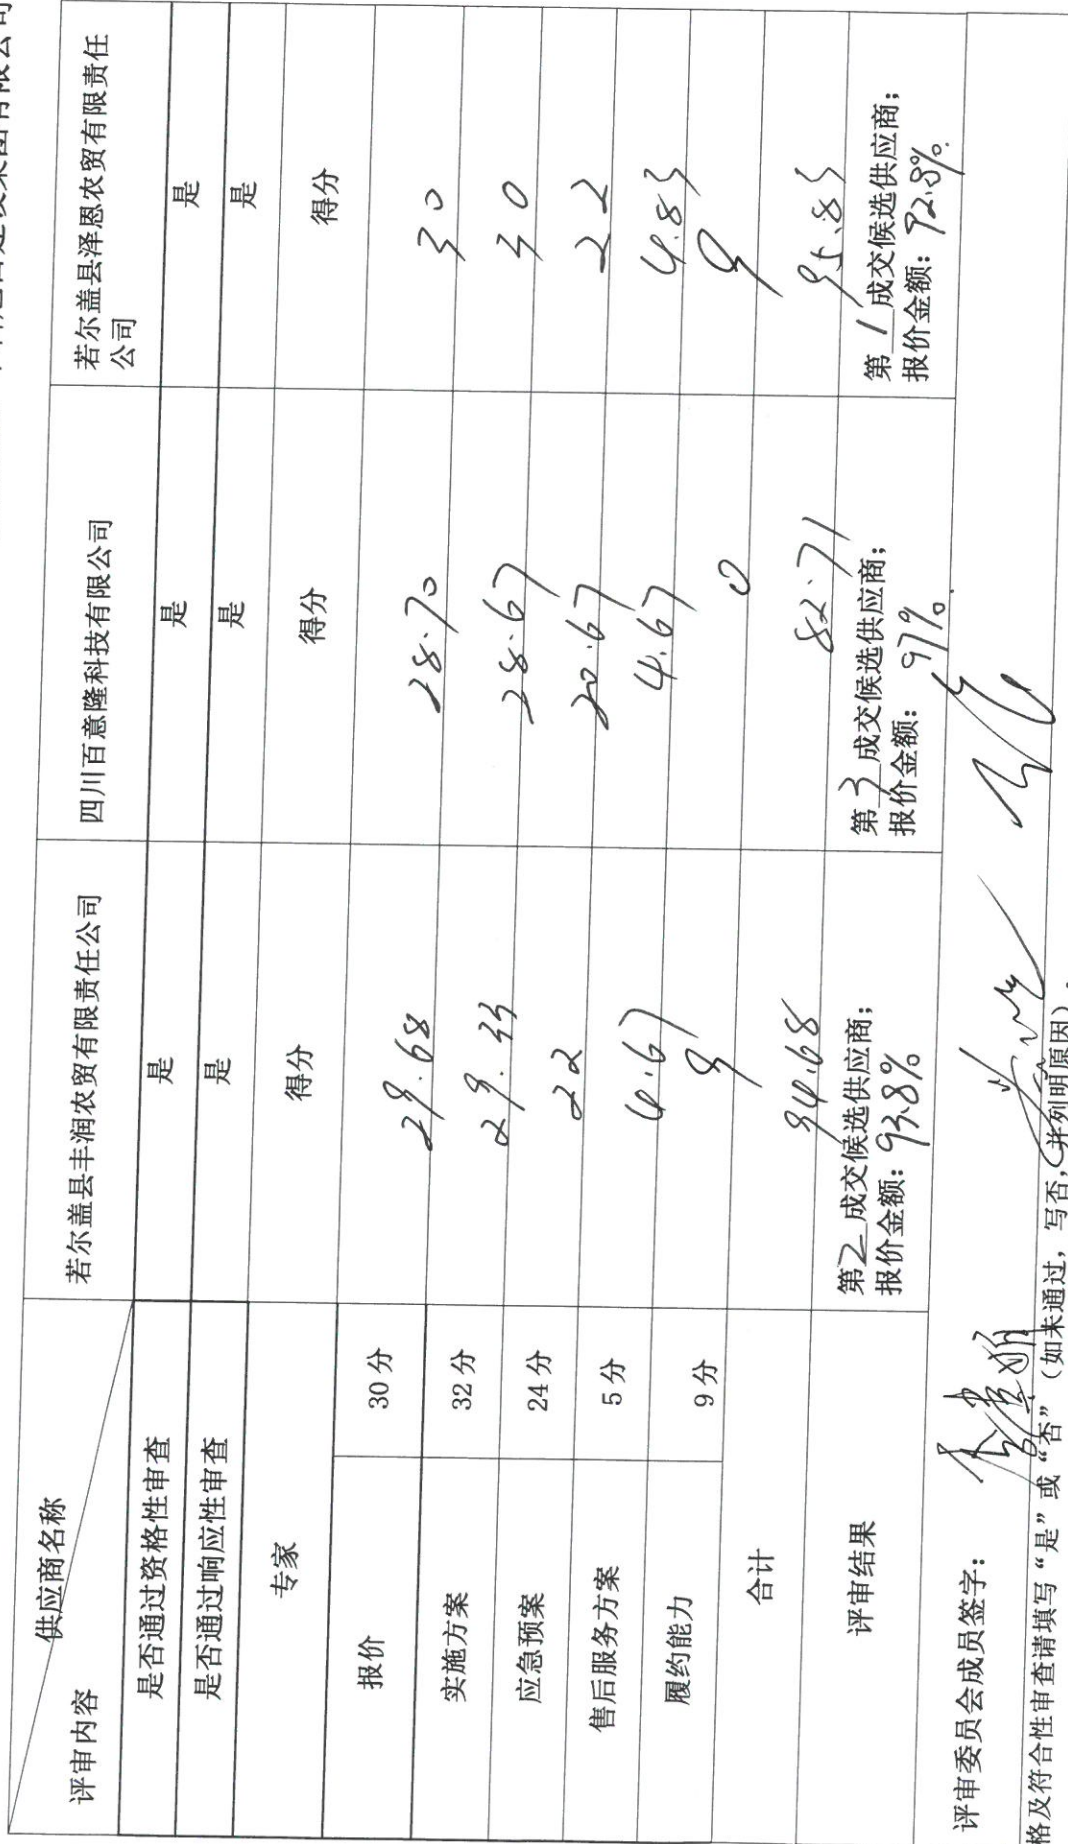 供应商名称
评审内容
若尔盖县丰润农贸有限责任公司
四川百意隆科技有限公司
若尔盖县泽恩农贸有限责任
公司
是否通过资格性审查 是 是 是
是否通过响应性审查 是 是 是
专家 得分 得分 得分
报价 30分 29.68 28.70 30
实施方案 32分 29.33 28.67 30
应急预案 24分 22 20.67 22
售后服务方案 5分 4.67 4.67 4.83
履约能力 9分 9 0 9
合计 94.68 82.71 95.83
评审结果
第2成交候选供应商;
报价金额: 93.8%
第3成交候选供应商;
报价金额: 97%.
第1成交候选供应商;
报价金额: 92.8%.
评审委员会成员签字:
格及符合性审查请填写“是”或“否”(如未通过, 写否, 并列明原因)